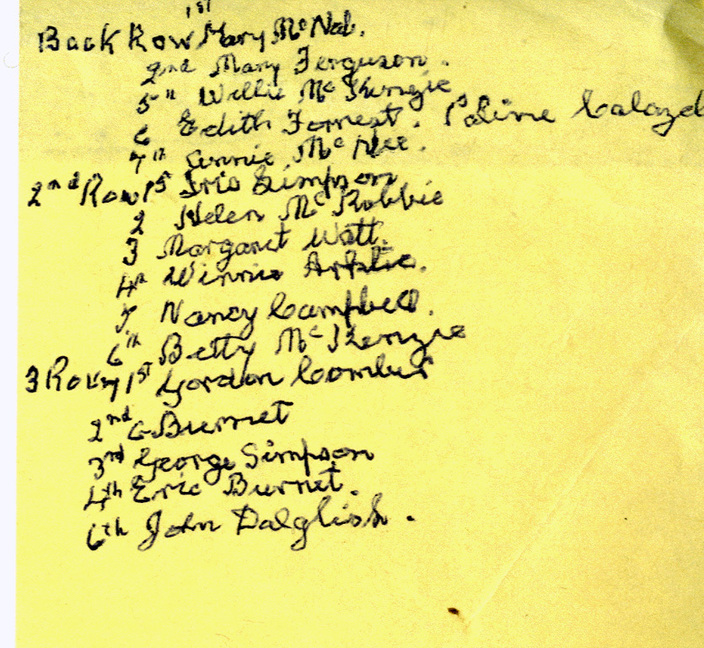 Back Row 1st Mary McNab.
2nd Mary Ferguson.
5th Willie McKenzie
6 Edith Forrest.
7th Annie McNee.
2nd Row 1st Iris Simpson
2 Helen McRobbie
3 Margaret Watt.
4th Winnie
5 Nancy Campbell.
6th Betty McKenzie
3 Row 1st Gordon
2nd G Burnet
3rd George Simpson
4th Eric Burnet.
6th John Dalglish.